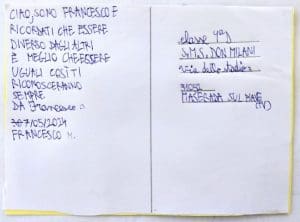 CIAO, SONO FRANCESCO E
RICORDATI CHE ESSERE
DIVERSO DAGLI ALTRI
È MEGLIO CHE ESSERE
UGUALI COSÌ TI
RICONOSCERANNO
SEMPRE.
DA Francesco
7/05/2024
FRANCESCO M.
classe 4ªD
S.M.S. DON MILANI
viale dello stadio
31052
MASERADA SUL PIAVE
(TV)